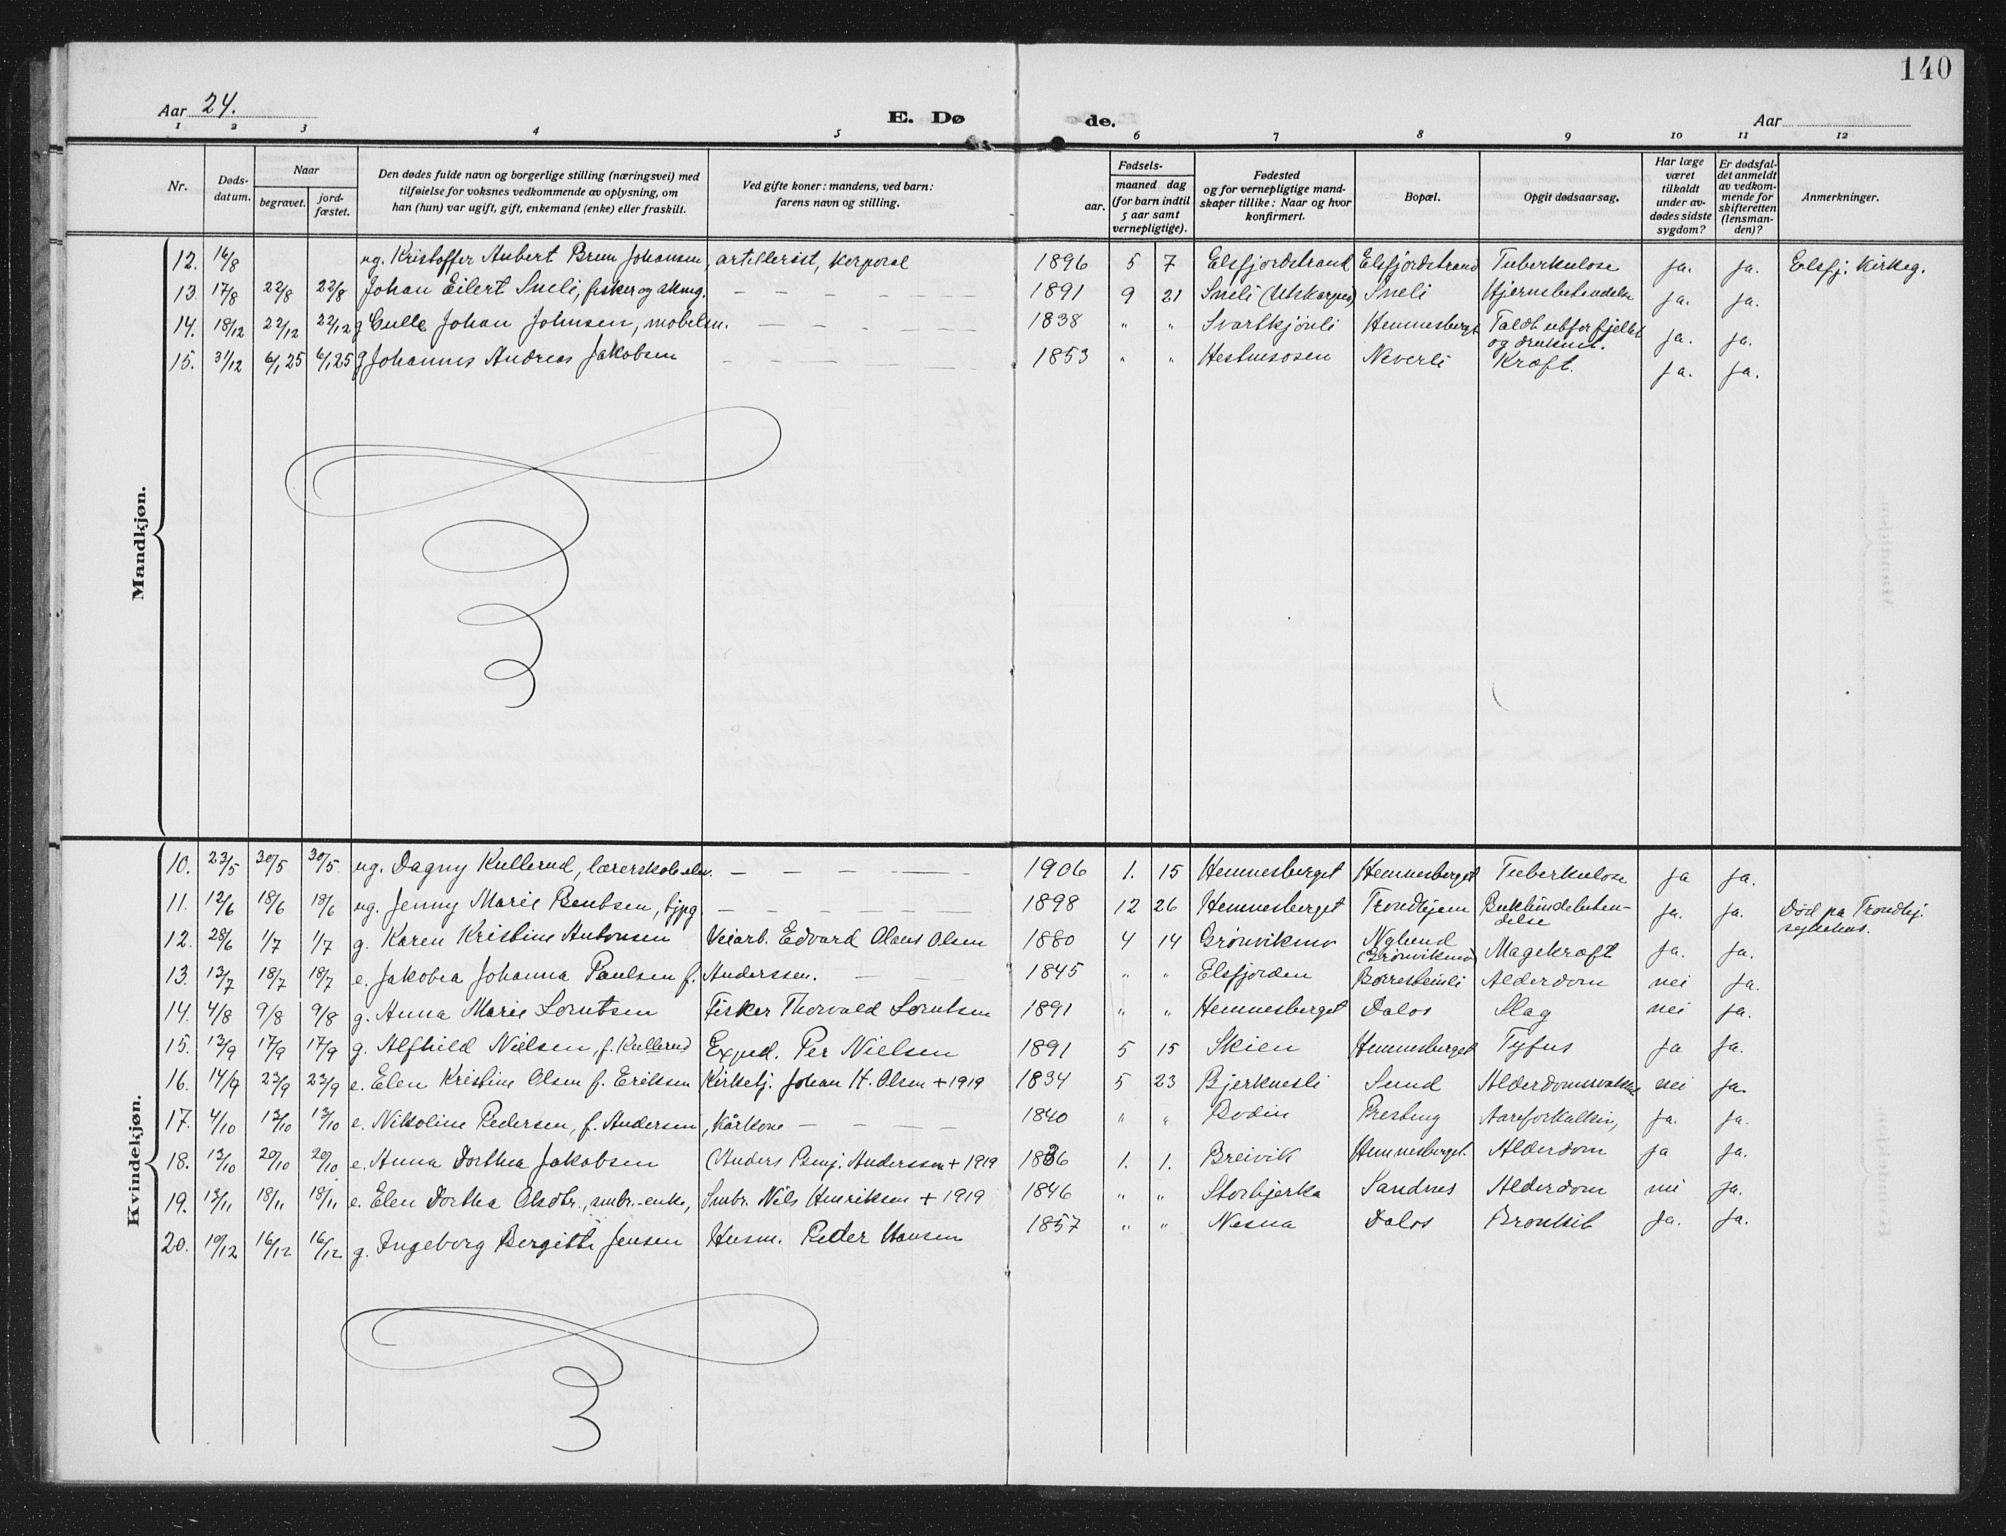 140
Aar 24.
E. Dø de.
Aar
1 2 3 4 5 6 7 8 9 10 11 12
Nr.
Døds-datum.
Naar
begravet.
jord-fæstet.
Den dødes fulde navn og borgerlige stilling (næringsvei) med
tilføielse for voksnes vedkommende av oplysning, om
han (hun) var ugift, gift, enkemand (enke) eller fraskilt.
Ved gifte koner: mandens, ved barn:
farens navn og stilling.
Fødsels-
aar.
maaned dag
(for barn indtil
5 aar samt
vernepligtige).
Fødested
og for vernepligtige mand-
skaper tillike: Naar og hvor
konfirmert.
Bopæl.
Opgit dødsaarsag.
Har læge
været
tilkaldt
under av-
dødes sidste
sygdom?
Er dødsfal-
det anmeldt
av vedkom-
mende for
skifteretten
(lensman-
den)?
Anmerkninger.
Mandkjøn.
12. 16/8 ug. Kristoffer Aubert Brun Johansen, artillerist, korporal 1896 5 7 Elsfjordstrand Elsfjordstrand Tuberkulose ja. ja. Elsfj. Kirkeg.
13. 17/8 22/8 22/8 Johan Eilert Sneli, fisker og - - - 1891 9 21 Sneli (Utskarpen) Sneli Hjernebetendelse ja. ja.
14. 18/12 22/12 22/12 g Culle Johan Johnsen, - - - 1838 " " Svartkjønli Hemnesberget utfor fjellet og druknet. ja. ja.
15. 31/12 6/1 25 6/1 25 g Johannes Andreas Jakobsen - - - 1853 " " Hestmosen Neverli Kræft. ja. ja.
Kvindekjøn.
10. 23/5 30/5 30/5 ug. Dagny Kullerud, lærerskoleelev. - - - 1906 1. 15 Hemnesberget Hemnesberget Tuberkulose ja ja.
11. 12/6 18/6 18/6 ug. Jenny Marie Bentsen, tjpg - - - 1898 12 26 Hemnesberget Trondhjem Bukhindebeten-delse ja. ja. Død pa Trondhj. sykehus.
12. 28/6 1/7 1/7 g. Karen Kristine Antonsen Veiarb. Edvard Olaus Olsen 1880 4 14 Grønvikmo Nylund (Grønvikmo) Magekræft ja. ja.
13. 13/7 18/7 18/7 e. Jakobea Johanna Paulsen f. Anderssen. - 1845 " " Elsfjorden Borresteinli Alderdom nei ja.
14. 4/8 9/8 9/8 g. Anna Marie Lorntsen Fisker Thorvald Lorntsen 1891 " " Hemnesberget Dalos Slag nei ja.
15. 13/9 17/9 17/9 g. Alfhild Nielsen, f. Kullerud Exped. Per Nielsen 1891 5 15 Skien Hemnesberget Tyfus ja ja.
16. 14/9 23/9 23/9 e. Elen Kristine Olsen f. Eriksen Kirketj. Johan H. Olsen + 1919 1834 5 23 Bjerknesli Sund Alderdomssvakhet nei ja.
17. 4/10 13/10 13/10 e. Nikoline Pedersen, f. Andersen, Kårkone - - - 1840 " " Bodin Presteng Aareforkalkin, ja. ja.
18. 13/10 20/10 20/10 e. Anna Dorthea Jakobsen (Anders Benj. Anderssen + 1919 1836 1. 1. Breivik Hemnesberget. Alderdom ja ja.
19. 13/11 18/11 18/11 e. Elen Dorthea Olsdtr., smbr.-enke, Smbr. Nils Henriksen + 1919 1846 " " Storbjerka Sandnes Alderdom nei ja.
20. 10/12 16/12 16/12 g. Ingeborg Bergitte Jensen Husm. Peder Hansen 1857 " " Nesna Dalos Bronkit ja. ja.